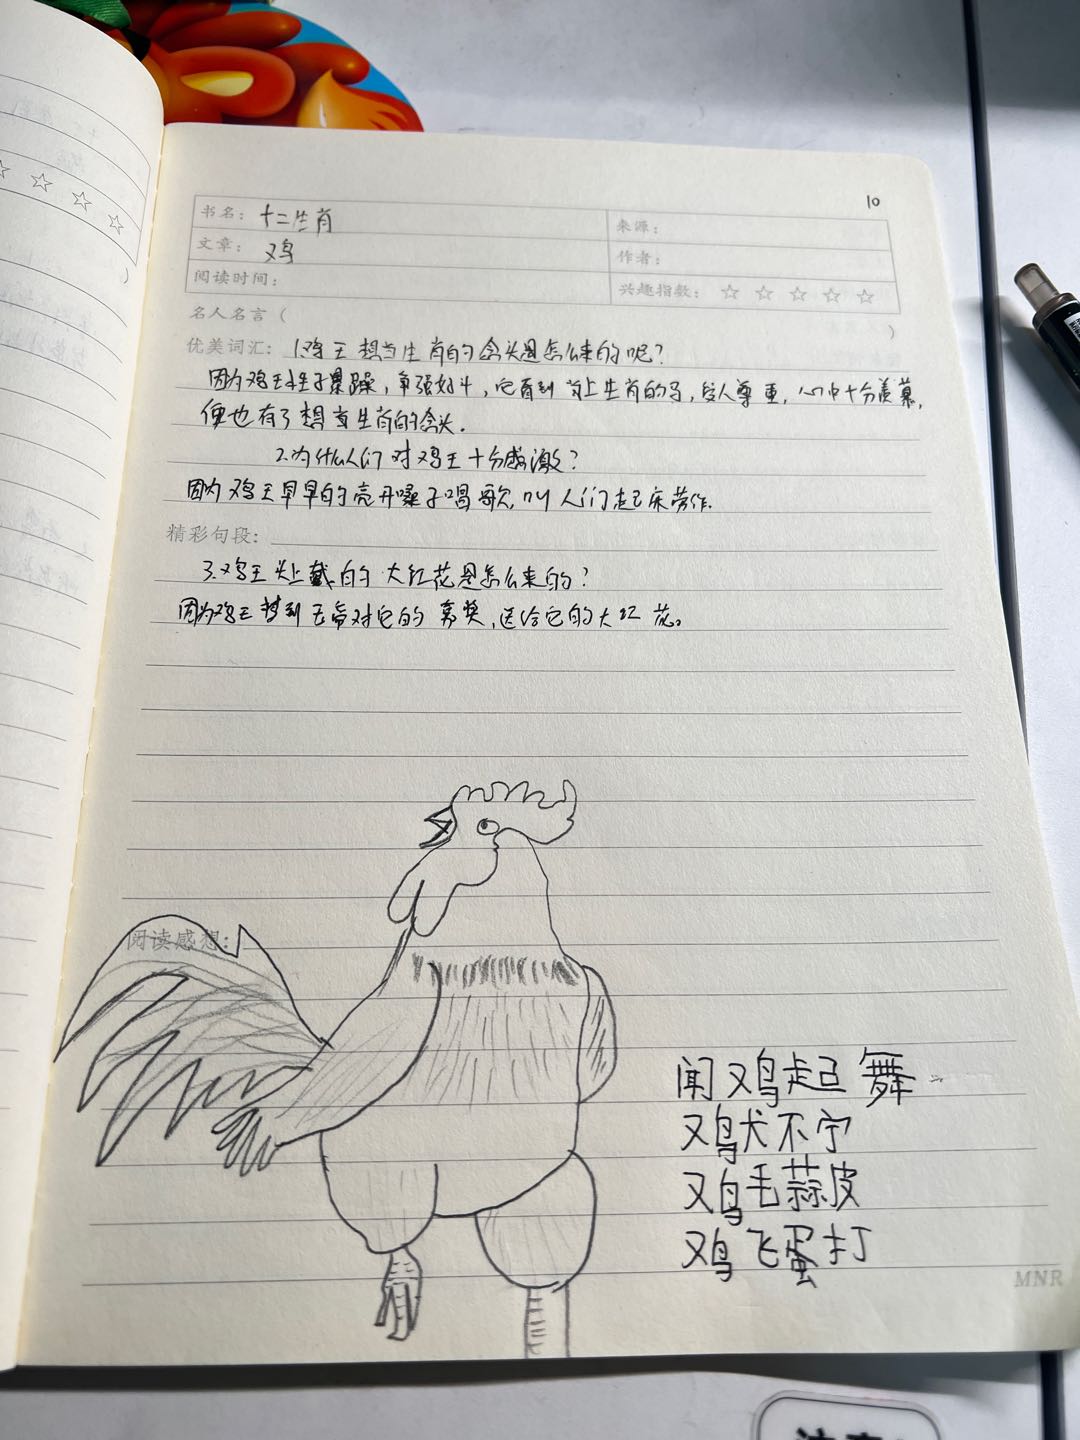 10
书名：十二生肖
来源：
文章：鸡
作者：
阅读时间：
兴趣指数：☆ ☆ ☆ ☆ ☆
名人名言（ ）
优美词汇：1.鸡王想当生肖的念头是怎么来的呢？
因为鸡王性子暴躁，争强好斗，它看到当上生肖的马，受人尊重，心中十分羡慕，
便也有了想当生肖的念头.
2.为什么人们对鸡王十分感激？
因为鸡王早早的亮开嗓子唱歌,叫人们起床劳作.
精彩句段：
3.鸡王头上戴的大红花是怎么来的？
因为鸡王得到玉帝对它的嘉奖,送给它的大红花。
阅读感想：
闻鸡起舞
鸡犬不宁
鸡毛蒜皮
鸡飞蛋打
MNR